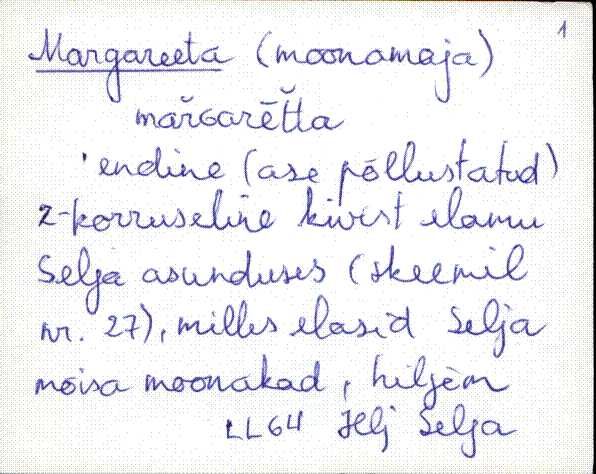 1
Margareeta (moonamaja)
mar̆ɢarēt̆ta
'endine (ase põllustatud)
2-korruseline kivist elamu
Selja asunduses (skeemil
nr. 27), milles elasid Selja
mõisa moonakad, hiljem
LL64 Hlj Selja